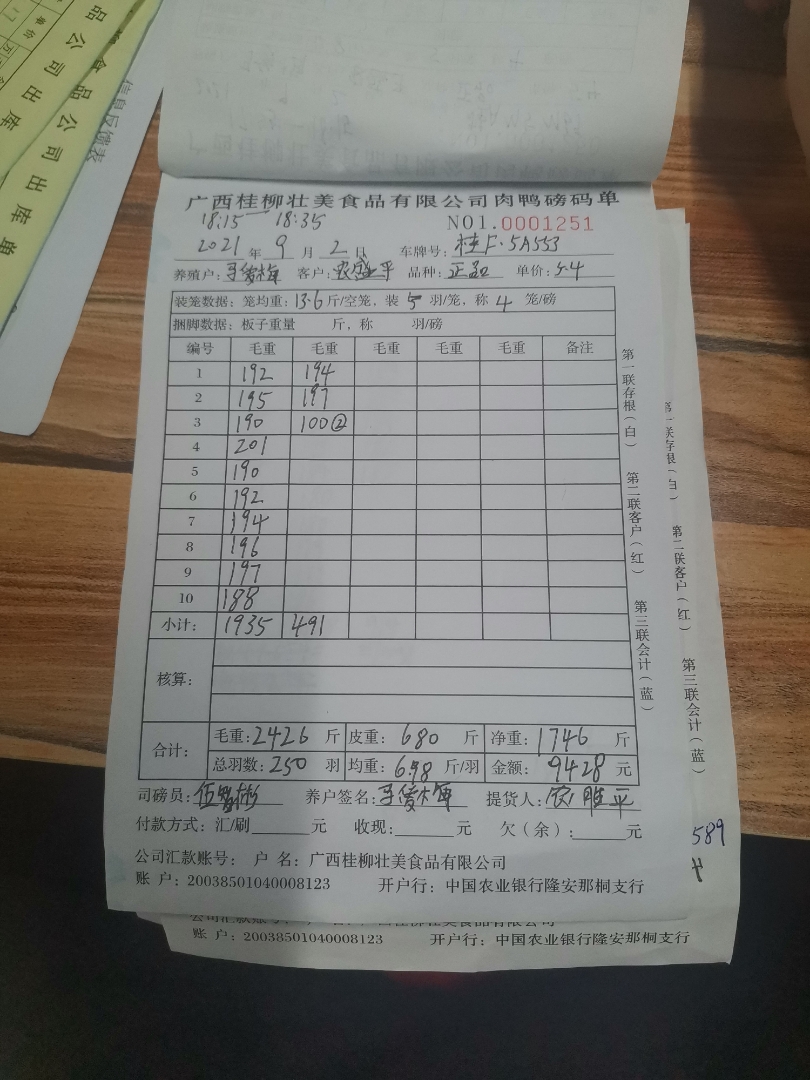 品公司出库
食品公司出库单
信息反馈表
广西桂柳壮美食品有限公司肉鸭磅码单
18:15 — 18:35 NO1.0001251
2021 年 9 月 2 日 车牌号: 桂F·5A553
养殖户: 客户: 农盛平 品种: 单价: 5.4
装笼数据: 笼均重: 13.6 斤/空笼, 装 5 羽/笼, 称 4 笼/磅
捆脚数据: 板子重量 斤, 称 羽/磅
编号 毛重 毛重 毛重 毛重 毛重 备注
1 192 194
2 195 197
3 190 100②
4 201
5 190
6 192
7 194
8 196
9 197
10 188
小计: 1935 491
核算:
合计: 毛重: 2426 斤 皮重: 680 斤 净重: 1746 斤
总羽数: 250 羽 均重: 6.98 斤/羽 金额: 9428 元
司磅员: 养户签名: 提货人:
付款方式: 汇/刷 元 收现: 元 欠(余): 元
公司汇款账号: 户 名: 广西桂柳壮美食品有限公司
账 户: 20038501040008123 开户行: 中国农业银行隆安那桐支行
第一联存根(白) 第二联客户(红) 第三联会计(蓝)
第一联存根(白) 第二联客户(红) 第三联会计(蓝)
589
账 户: 20038501040008123 开户行: 中国农业银行隆安那桐支行